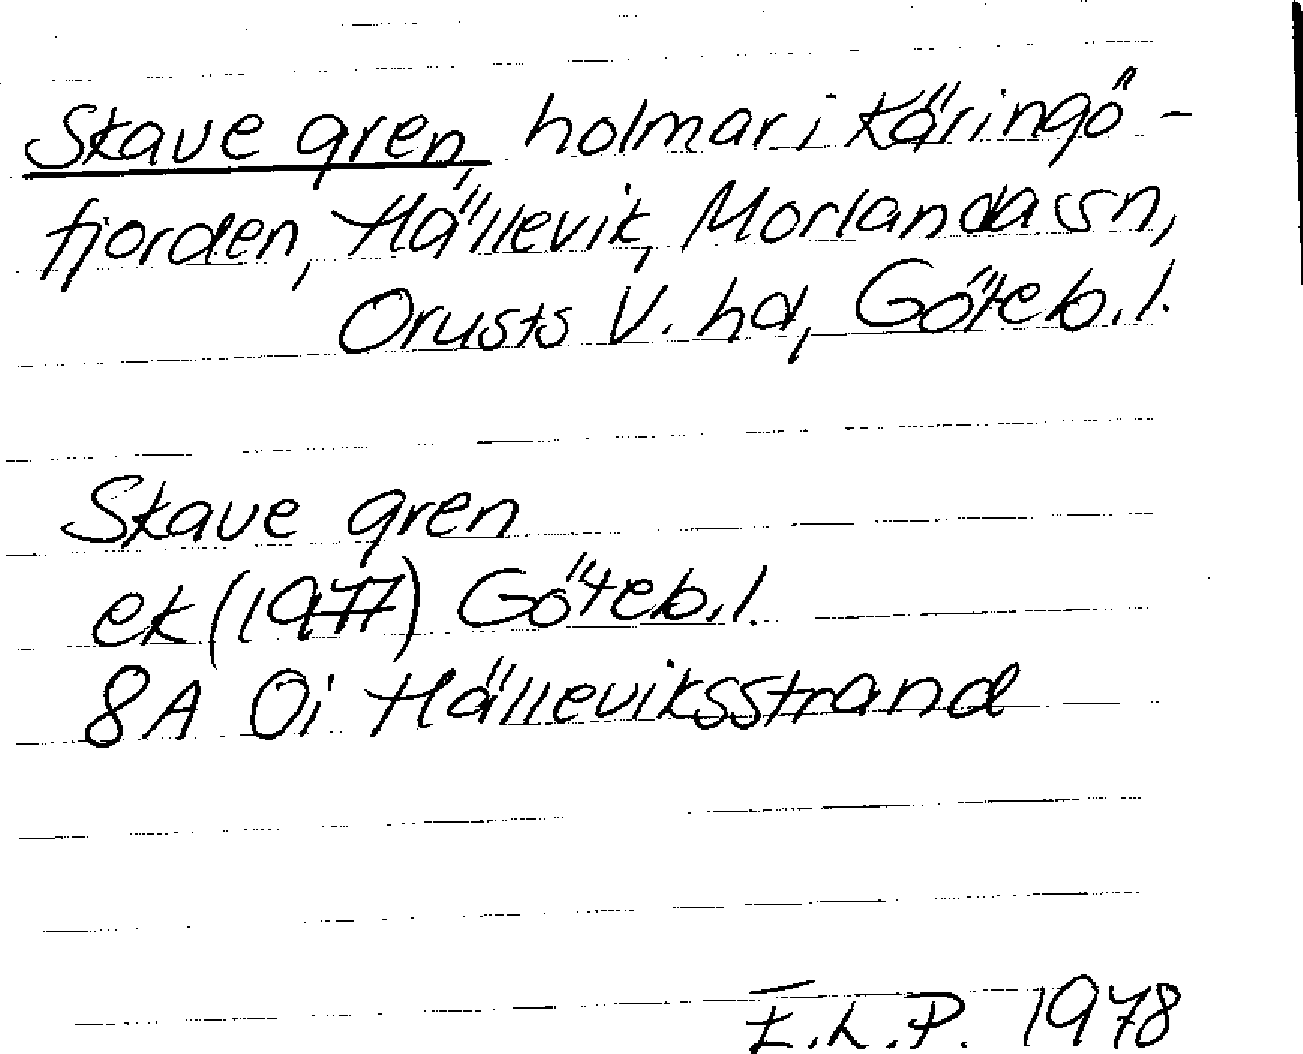 Skave gren, holmar i Käringö-
fjorden, Hällevik, Morlanda sn,
Orusts V. hd, Göteb. l.
Skave gren
ek (1977) Göteb. l.
8A 0i Hälleviksstrand
E.L.P. 1978